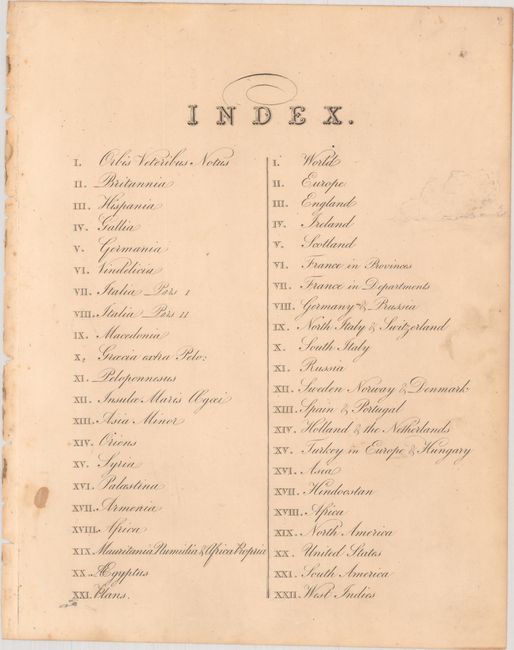 INDEX.
I. Orbis Veteribus Notus
II. Britannia
III. Hispania
IV. Gallia
V. Germania
VI. Vindelicia
VII. Italia Pars I
VIII. Italia Pars II
IX. Macedonia
X. Græcia extra Pelo:
XI. Peloponnesus
XII. Insulæ Maris Ægæi
XIII. Asia Minor
XIV. Oriens
XV. Syria
XVI. Palæstina
XVII. Armenia
XVIII. Africa
XIX. Mauritania Numidia & Africa Propria
XX. Ægyptus
XXI. Plans.
I. World
II. Europe
III. England
IV. Ireland
V. Scotland
VI. France in Provinces
VII. France in Departments
VIII. Germany & Prussia
IX. North Italy & Switzerland
X. South Italy
XI. Russia
XII. Sweden Norway & Denmark
XIII. Spain & Portugal
XIV. Holland & the Netherlands
XV. Turkey in Europe & Hungary
XVI. Asia
XVII. Hindoostan
XVIII. Africa
XIX. North America
XX. United States
XXI. South America
XXII. West Indies